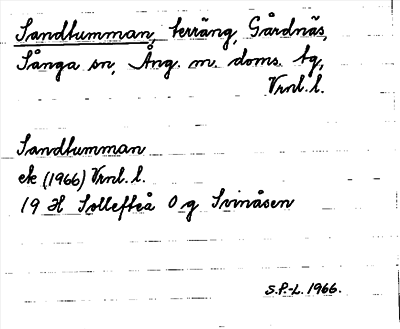 Sandtumman, terräng, Gårdnäs,
Sånga sn, Ång. m. doms. tg,
Vrnl. l.
Sandtumman
ek (1966) Vrnl. l.
19 H Sollefteå O g Svinåsen
S.P.-L. 1966.